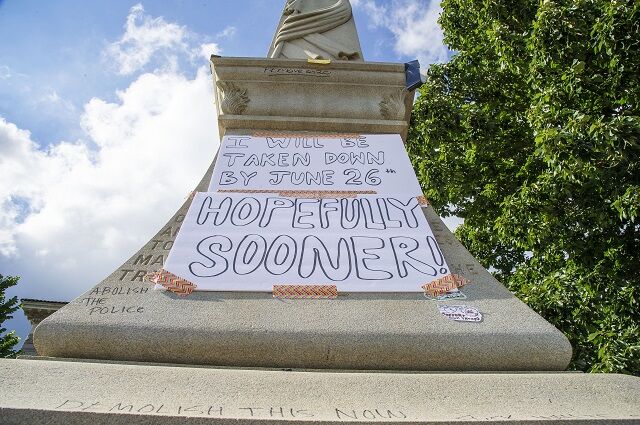 I WILL BE
TAKEN DOWN
BY JUNE 26th
HOPEFULLY
SOONER!
ABOLISH
THE
POLICE
DEMOLISH THIS NOW